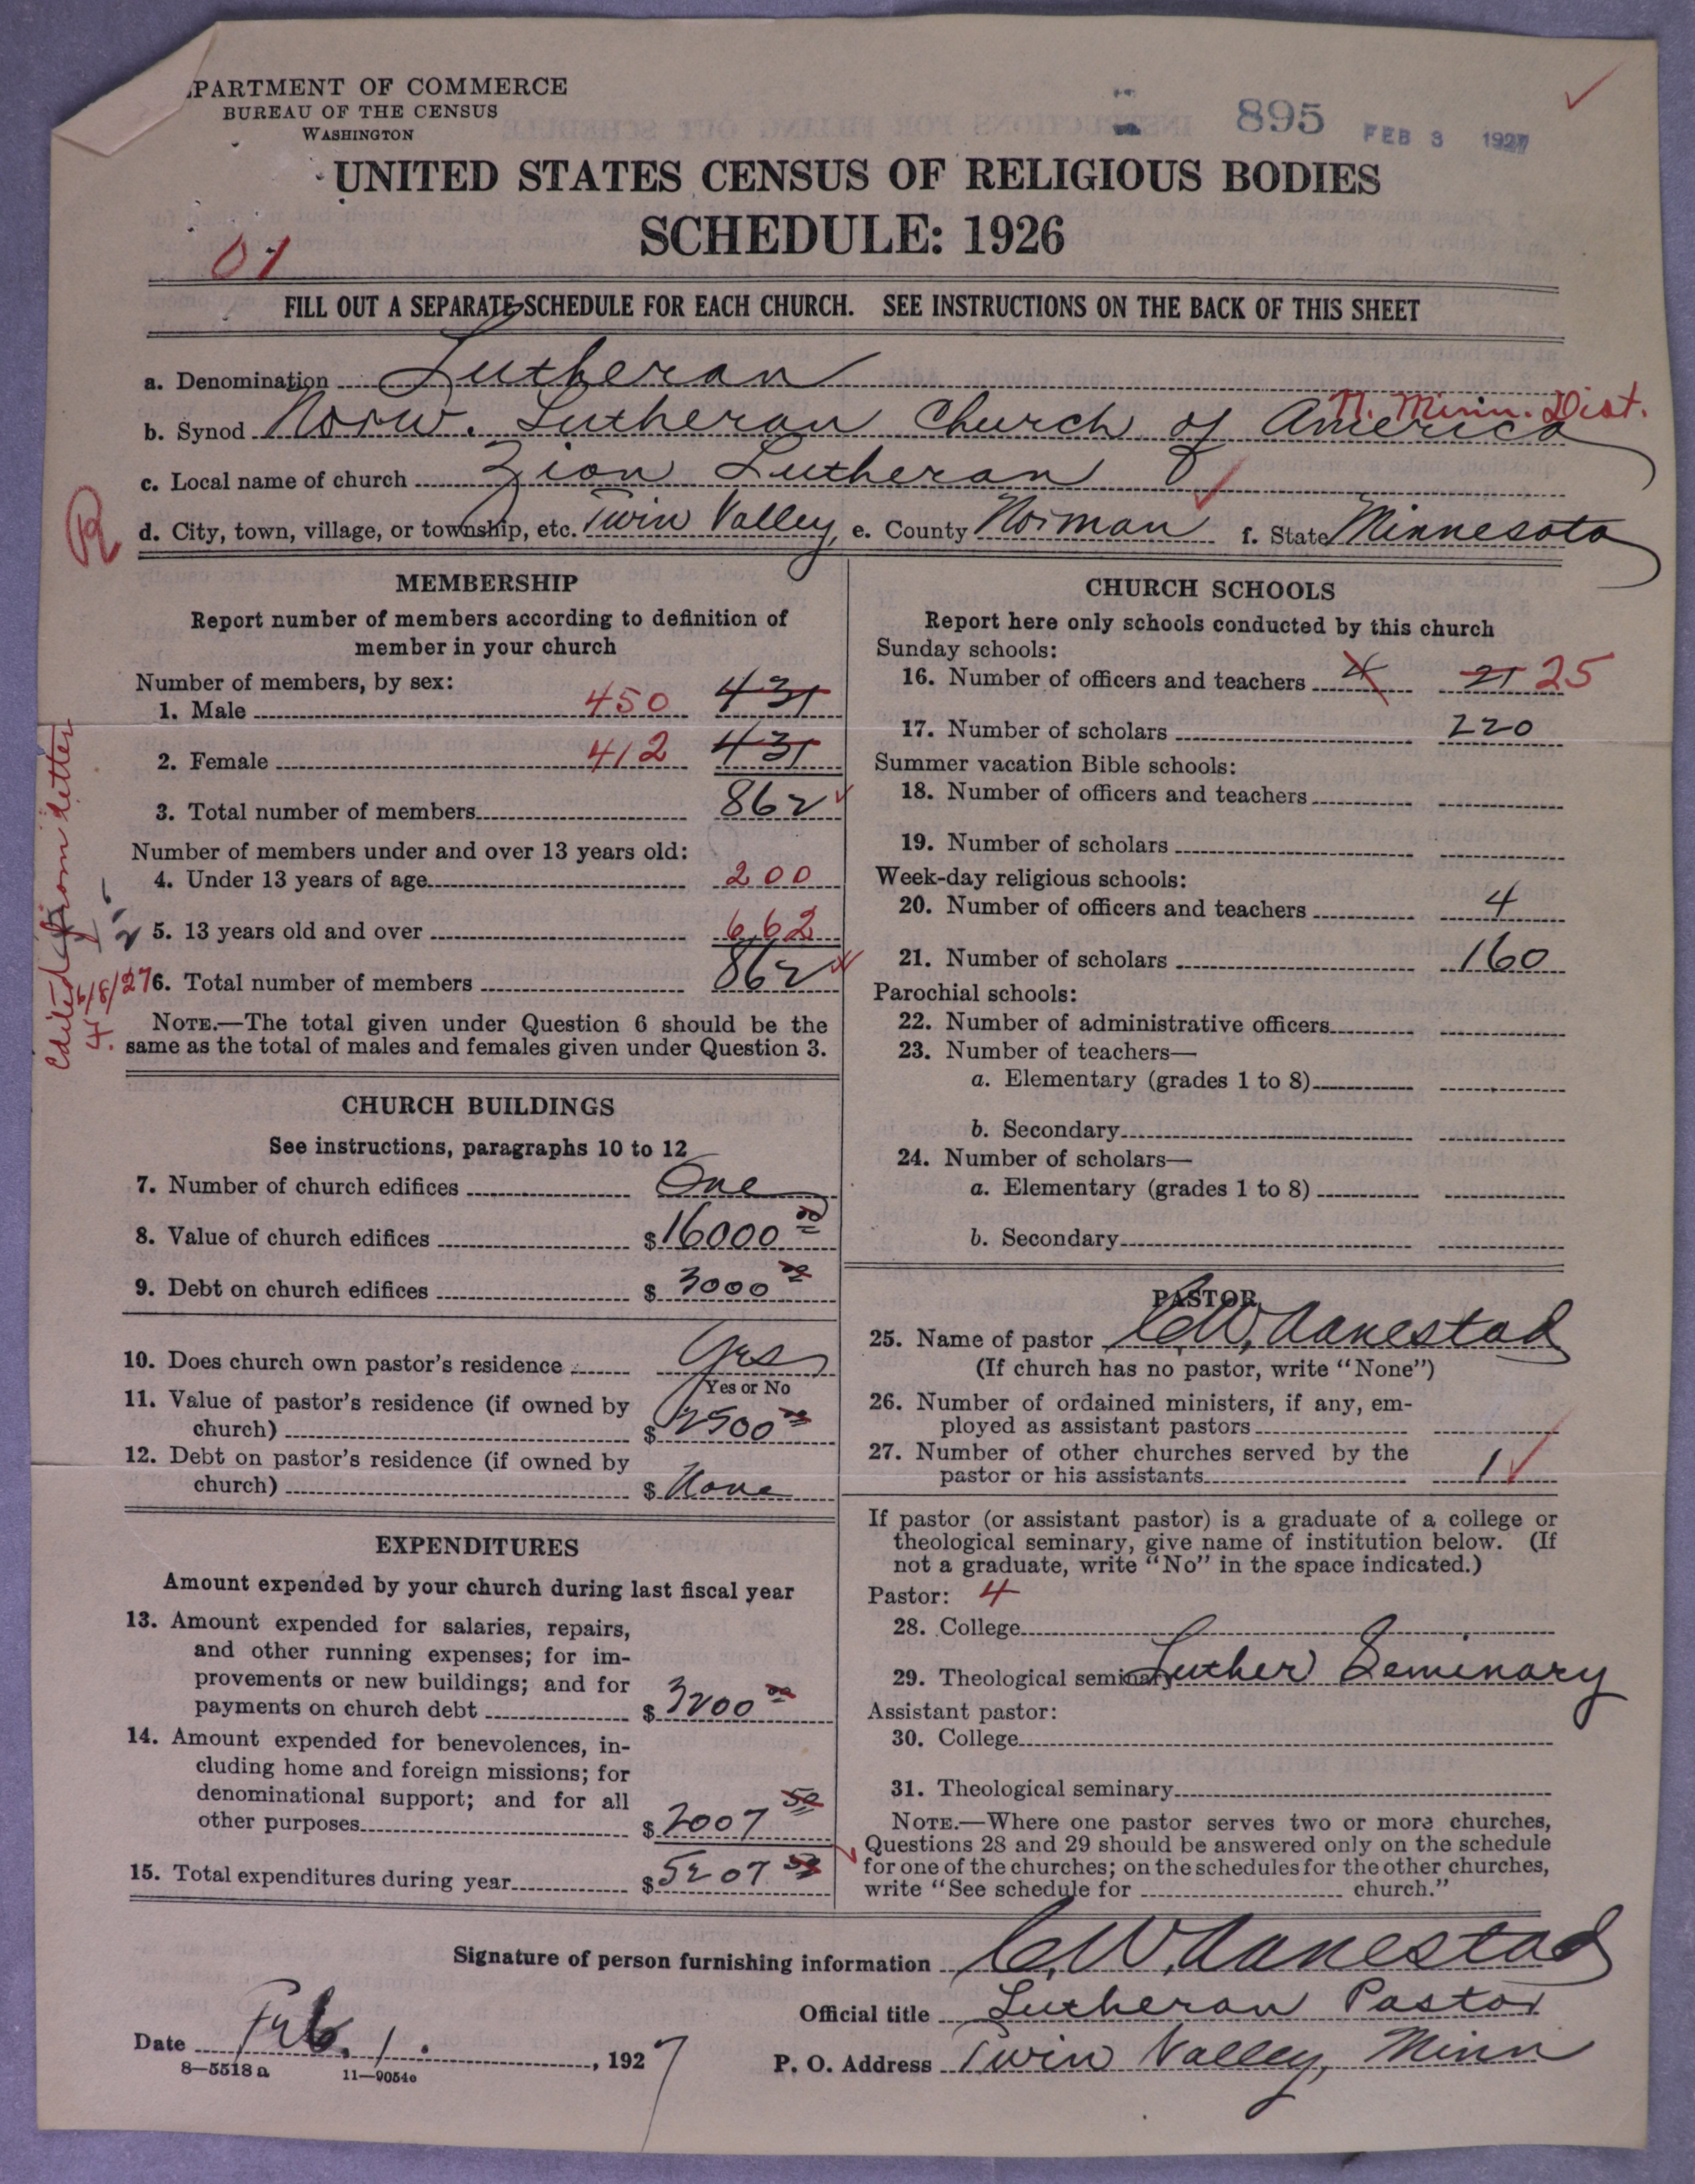 PARTMENT OF COMMERCE
BUREAU OF THE CENSUS
WASHINGTON
895 FEB 3 1927
UNITED STATES CENSUS OF RELIGIOUS BODIES
SCHEDULE: 1926
01
FILL OUT A SEPARATE SCHEDULE FOR EACH CHURCH. SEE INSTRUCTIONS ON THE BACK OF THIS SHEET
a. Denomination Lutheran
N. Minn. Dist.
b. Synod Norw. Lutheran Church of America
c. Local name of church Zion Lutheran
R
d. City, town, village, or township, etc. Twin Valley, e. County Norman f. State Minnesota
MEMBERSHIP
Report number of members according to definition of
member in your church
Number of members, by sex:
1. Male 450 431
2. Female 412 431
3. Total number of members 862
Number of members under and over 13 years old:
4. Under 13 years of age 200
5. 13 years old and over 662
6. Total number of members 862
NOTE.—The total given under Question 6 should be the
same as the total of males and females given under Question 3.
Edited from letter
6/8/27
F.
CHURCH BUILDINGS
See instructions, paragraphs 10 to 12
7. Number of church edifices One
8. Value of church edifices $16000 00
9. Debt on church edifices $ 3000 00
10. Does church own pastor's residence Yes
Yes or No
11. Value of pastor's residence (if owned by
church) $ 2500 00
12. Debt on pastor's residence (if owned by
church) $ None
EXPENDITURES
Amount expended by your church during last fiscal year
13. Amount expended for salaries, repairs,
and other running expenses; for im-
provements or new buildings; and for
payments on church debt $ 3200 00
14. Amount expended for benevolences, in-
cluding home and foreign missions; for
denominational support; and for all
other purposes $ 2007 50
15. Total expenditures during year $ 5207 50
CHURCH SCHOOLS
Report here only schools conducted by this church
Sunday schools:
16. Number of officers and teachers 4 21 25
17. Number of scholars 220
Summer vacation Bible schools:
18. Number of officers and teachers
19. Number of scholars
Week-day religious schools:
20. Number of officers and teachers 4
21. Number of scholars 160
Parochial schools:
22. Number of administrative officers
23. Number of teachers—
a. Elementary (grades 1 to 8)
b. Secondary
24. Number of scholars—
a. Elementary (grades 1 to 8)
b. Secondary
PASTOR
25. Name of pastor C.W. Aanestad
(If church has no pastor, write "None")
26. Number of ordained ministers, if any, em-
ployed as assistant pastors
27. Number of other churches served by the
pastor or his assistants 1
If pastor (or assistant pastor) is a graduate of a college or
theological seminary, give name of institution below. (If
not a graduate, write "No" in the space indicated.)
Pastor: 4
28. College
29. Theological seminary Luther Seminary
Assistant pastor:
30. College
31. Theological seminary
NOTE.—Where one pastor serves two or more churches,
Questions 28 and 29 should be answered only on the schedule
for one of the churches; on the schedules for the other churches,
write "See schedule for church."
Signature of person furnishing information C.W. Aanestad
Official title Lutheran Pastor
Date Feb. 1. , 1927
P. O. Address Twin Valley, Minn
8—5518 a 11—9054a